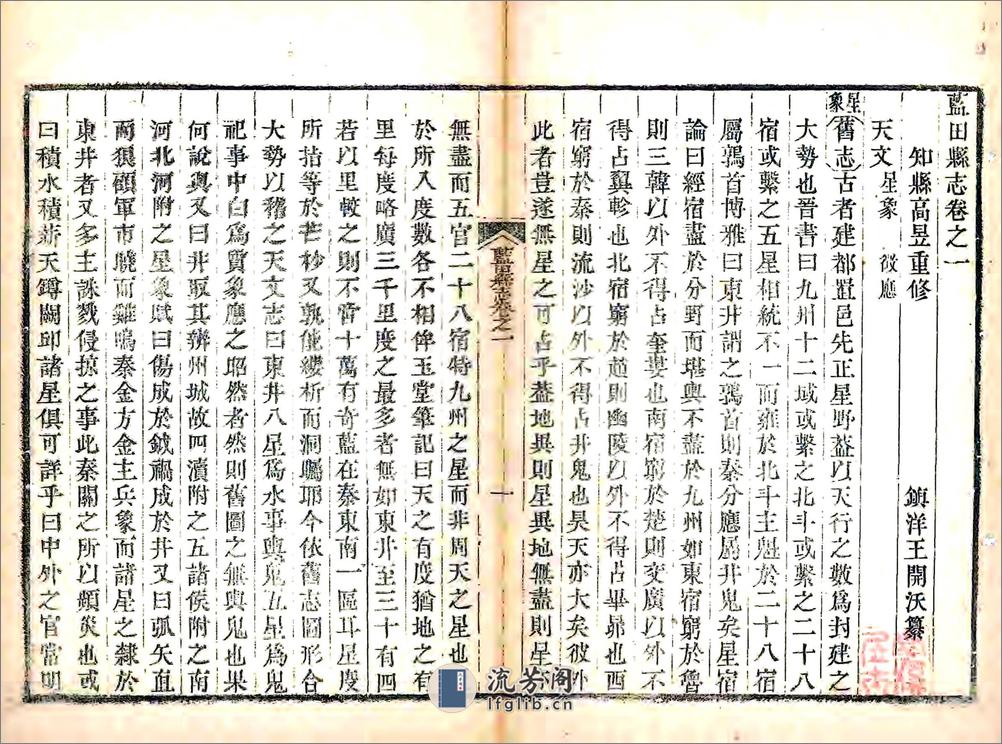 藍田縣志卷之一
知縣高昱重修 鎮洋王開沃纂
天文 星象 祲應
星象 舊志 古者建都置邑先正星野蓋以天行之數爲封建之
大勢也晉書曰九州十二域或繫之北斗或繫之二十八
宿或繫之五星相統不一而雍於北斗主魁於二十八宿
屬鶉首博雅曰東井謂之鶉首則秦分應屬井鬼矣星
論曰經宿盡於分野而堪輿不盡於九州如東宿窮於魯
則三韓以外不得占奎婁也南宿窮於楚則交廣以外不
得占翼軫也北宿窮於趙則幽陵以外不得占畢昴也西
宿窮於秦則流沙以外不得占井鬼也昊天亦大矣彼外
此者豈遂無星之可占乎蓋地異則星異地無盡則星
藍田縣志卷之一
一
無盡而五官二十八宿特九州之星而非周天之星也至
於所入度數各不相侔玉堂筆記曰天之有度猶地之有
里每度略廣三千里度之最多者無如東井至三十有四
若以里較之則不啻十萬有奇藍在秦東南一區耳星度
所拮等於芒杪又孰能縷析而洞矚耶今依舊志圖形合
大勢以稽之天文志曰東井八星爲水事輿鬼五星爲鬼
祀事中白爲質象應之昭然者然則舊圖之無輿鬼也果
何說與又曰井取其辨州城故四瀆附之五諸侯附之南
河北河附之星象賦曰傷成於鉞禍成於井又曰弧矢直
而狼碩軍市曉而雞鳴秦金方金主兵象而諸星之隸於
東井者又多主誅戮侵掠之事此秦關之所以頻災也或
曰積水積薪天鐏闕邱諸星俱可詳乎曰中外之官常明
流芳阁
lfglib.cn